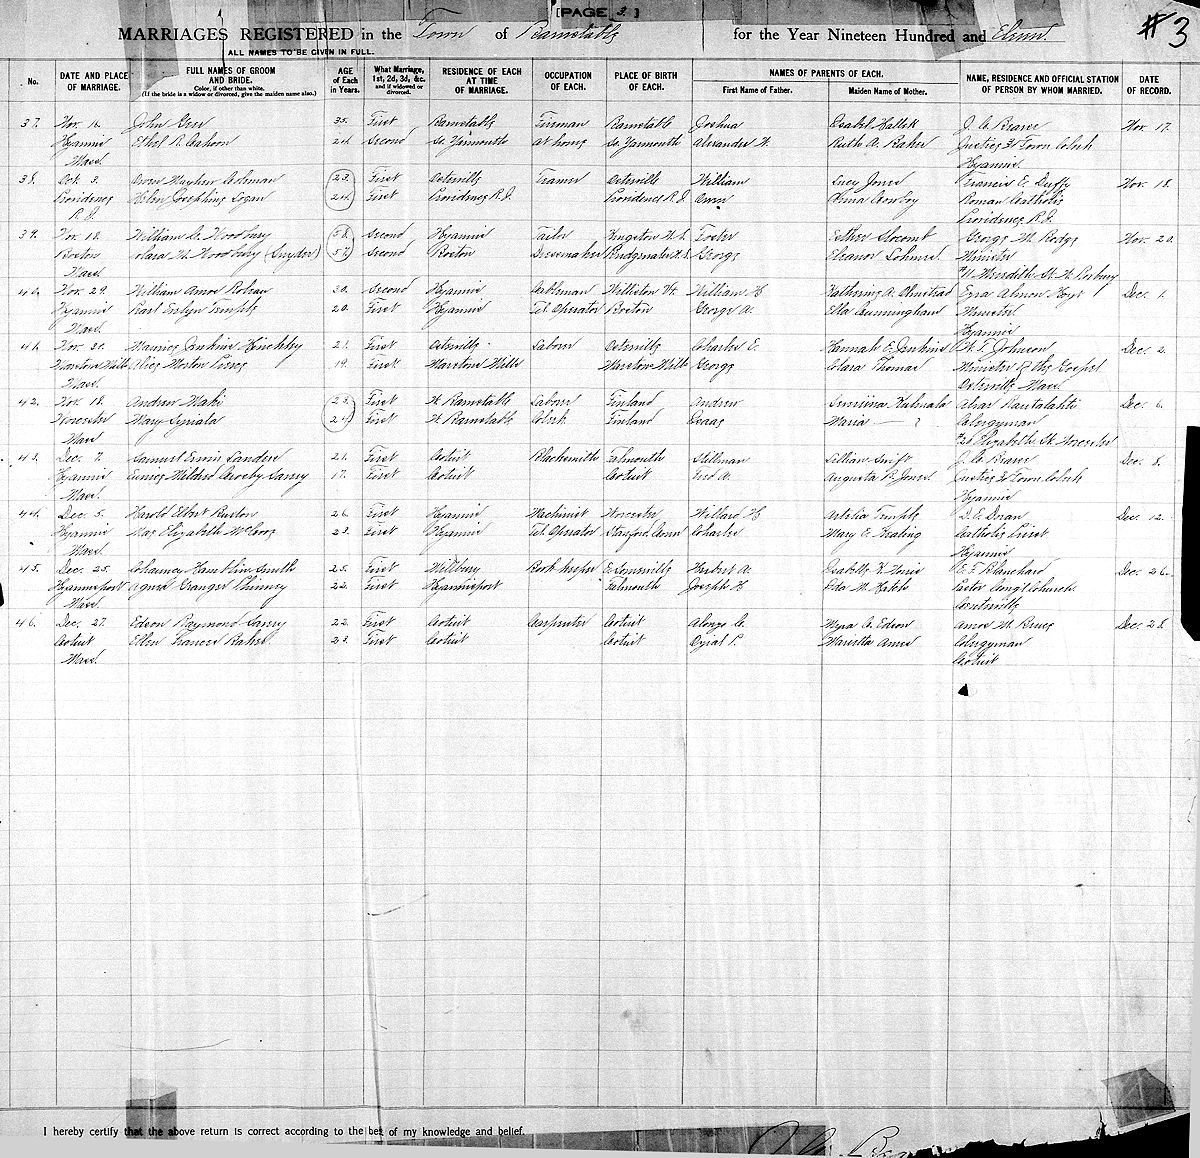 [PAGE 3.]
#3
MARRIAGES REGISTERED in the Town of Barnstable for the Year Nineteen Hundred and Eleven.
ALL NAMES TO BE GIVEN IN FULL.
No. DATE AND PLACE OF MARRIAGE. FULL NAMES OF GROOM AND BRIDE. Color, if other than white. (If the bride is a widow or divorced, give the maiden name also.) AGE of Each in Years. What Marriage, 1st, 2d, 3d, &c. and if widowed or divorced. RESIDENCE OF EACH AT TIME OF MARRIAGE. OCCUPATION OF EACH. PLACE OF BIRTH OF EACH. NAMES OF PARENTS OF EACH. First Name of Father. Maiden Name of Mother. NAME, RESIDENCE AND OFFICIAL STATION OF PERSON BY WHOM MARRIED. DATE OF RECORD.
37. Nov. 16. John 35. First Barnstable Fireman Barnstable Joshua Isabel Nov. 17.
Hyannis Ethel R. Cahoon 24. Second So. Yarmouth at home So. Yarmouth Alexander H. Ruth A. Baker Justice & Town Clerk
Mass. Hyannis
38. Oct. 3. Owen Mayhew Coleman 23. First Osterville Osterville William Lucy Jones Francis E. Duffy Nov. 18.
Providence Helen Josephine Logan 24. First Providence R.I. Providence R.I. Owen Anna Conboy Roman Catholic
R.I. Providence R.I.
39. Nov. 18. William C. Woodbury 58. Second Hyannis Tailor Kingston N.S. Foster Esther Slocomb George M. Nov. 20.
Boston Clara M. Woodbury (Snyder) 57. Second Boston Dressmaker Bridgewater N.S. George Eleanor Minister
Mass. Meredith St. W. Roxbury
40. Nov. 29. William Amos 30. Second Hyannis Williston Vt. William H. Katherine A. Olmstead Ezra Almon Hoyt Dec. 1.
Hyannis Pearl Evelyn Temple 20. First Hyannis Tel. Operator Boston George A. Ella Cunningham Minister
Mass. Hyannis
41. Nov. 30. Jenkins Hinckley 21. First Osterville Laborer Osterville Charles E. Hannah E. Jenkins H. T. Johnson Dec. 2.
Marstons Mills Alice Morton 19. First Marstons Mills Marstons Mills George Clara Thomas Minister of the Gospel
Mass. Osterville Mass.
42. Nov. 18. Andrew Maki 23. First W. Barnstable Laborer Finland Andrew Dec. 6.
Worcester Mary 24. First W. Barnstable Clerk Finland Isaac Maria — ? Clergyman
Mass. Elizabeth St. Worcester
43. Dec. 7. Samuel Sanders 21. First Cotuit Blacksmith Falmouth Stillman Lillian Swift Dec. 8.
Hyannis Eunice Mildred Savery 17. First Cotuit Cotuit Augusta P. Jones Justice & Town Clerk
Mass. Hyannis
44. Dec. 5. Harold Elbert 26. First Hyannis Machinist Worcester Willard H. Artelia Temple D. E. Doran Dec. 12.
Hyannis May Elizabeth 23. First Hyannis Tel. Operator Stamford Conn. Charles Mary C. Keating Catholic Priest
Mass. Hyannis
45. Dec. 25. Chauncey Hamblin Smith 25. First Millbury Book keeper Herbert A. Isabelle E. F. Blanchard Dec. 26.
Hyannisport Agnes Granger Phinney 22. First Hyannisport Falmouth Joseph H. Ida M. Hatch Pastor Cong'l Church
Mass. Centerville
46. Dec. 27. Edson Raymond Savery 22. First Cotuit Carpenter Cotuit Alonzo C. Myra C. Edson Amos M. Bruce Dec. 28.
Cotuit Ellen Frances Baker 23. First Cotuit Cotuit Marietta Ames Clergyman
Mass. Cotuit
I hereby certify that the above return is correct according to the best of my knowledge and belief.